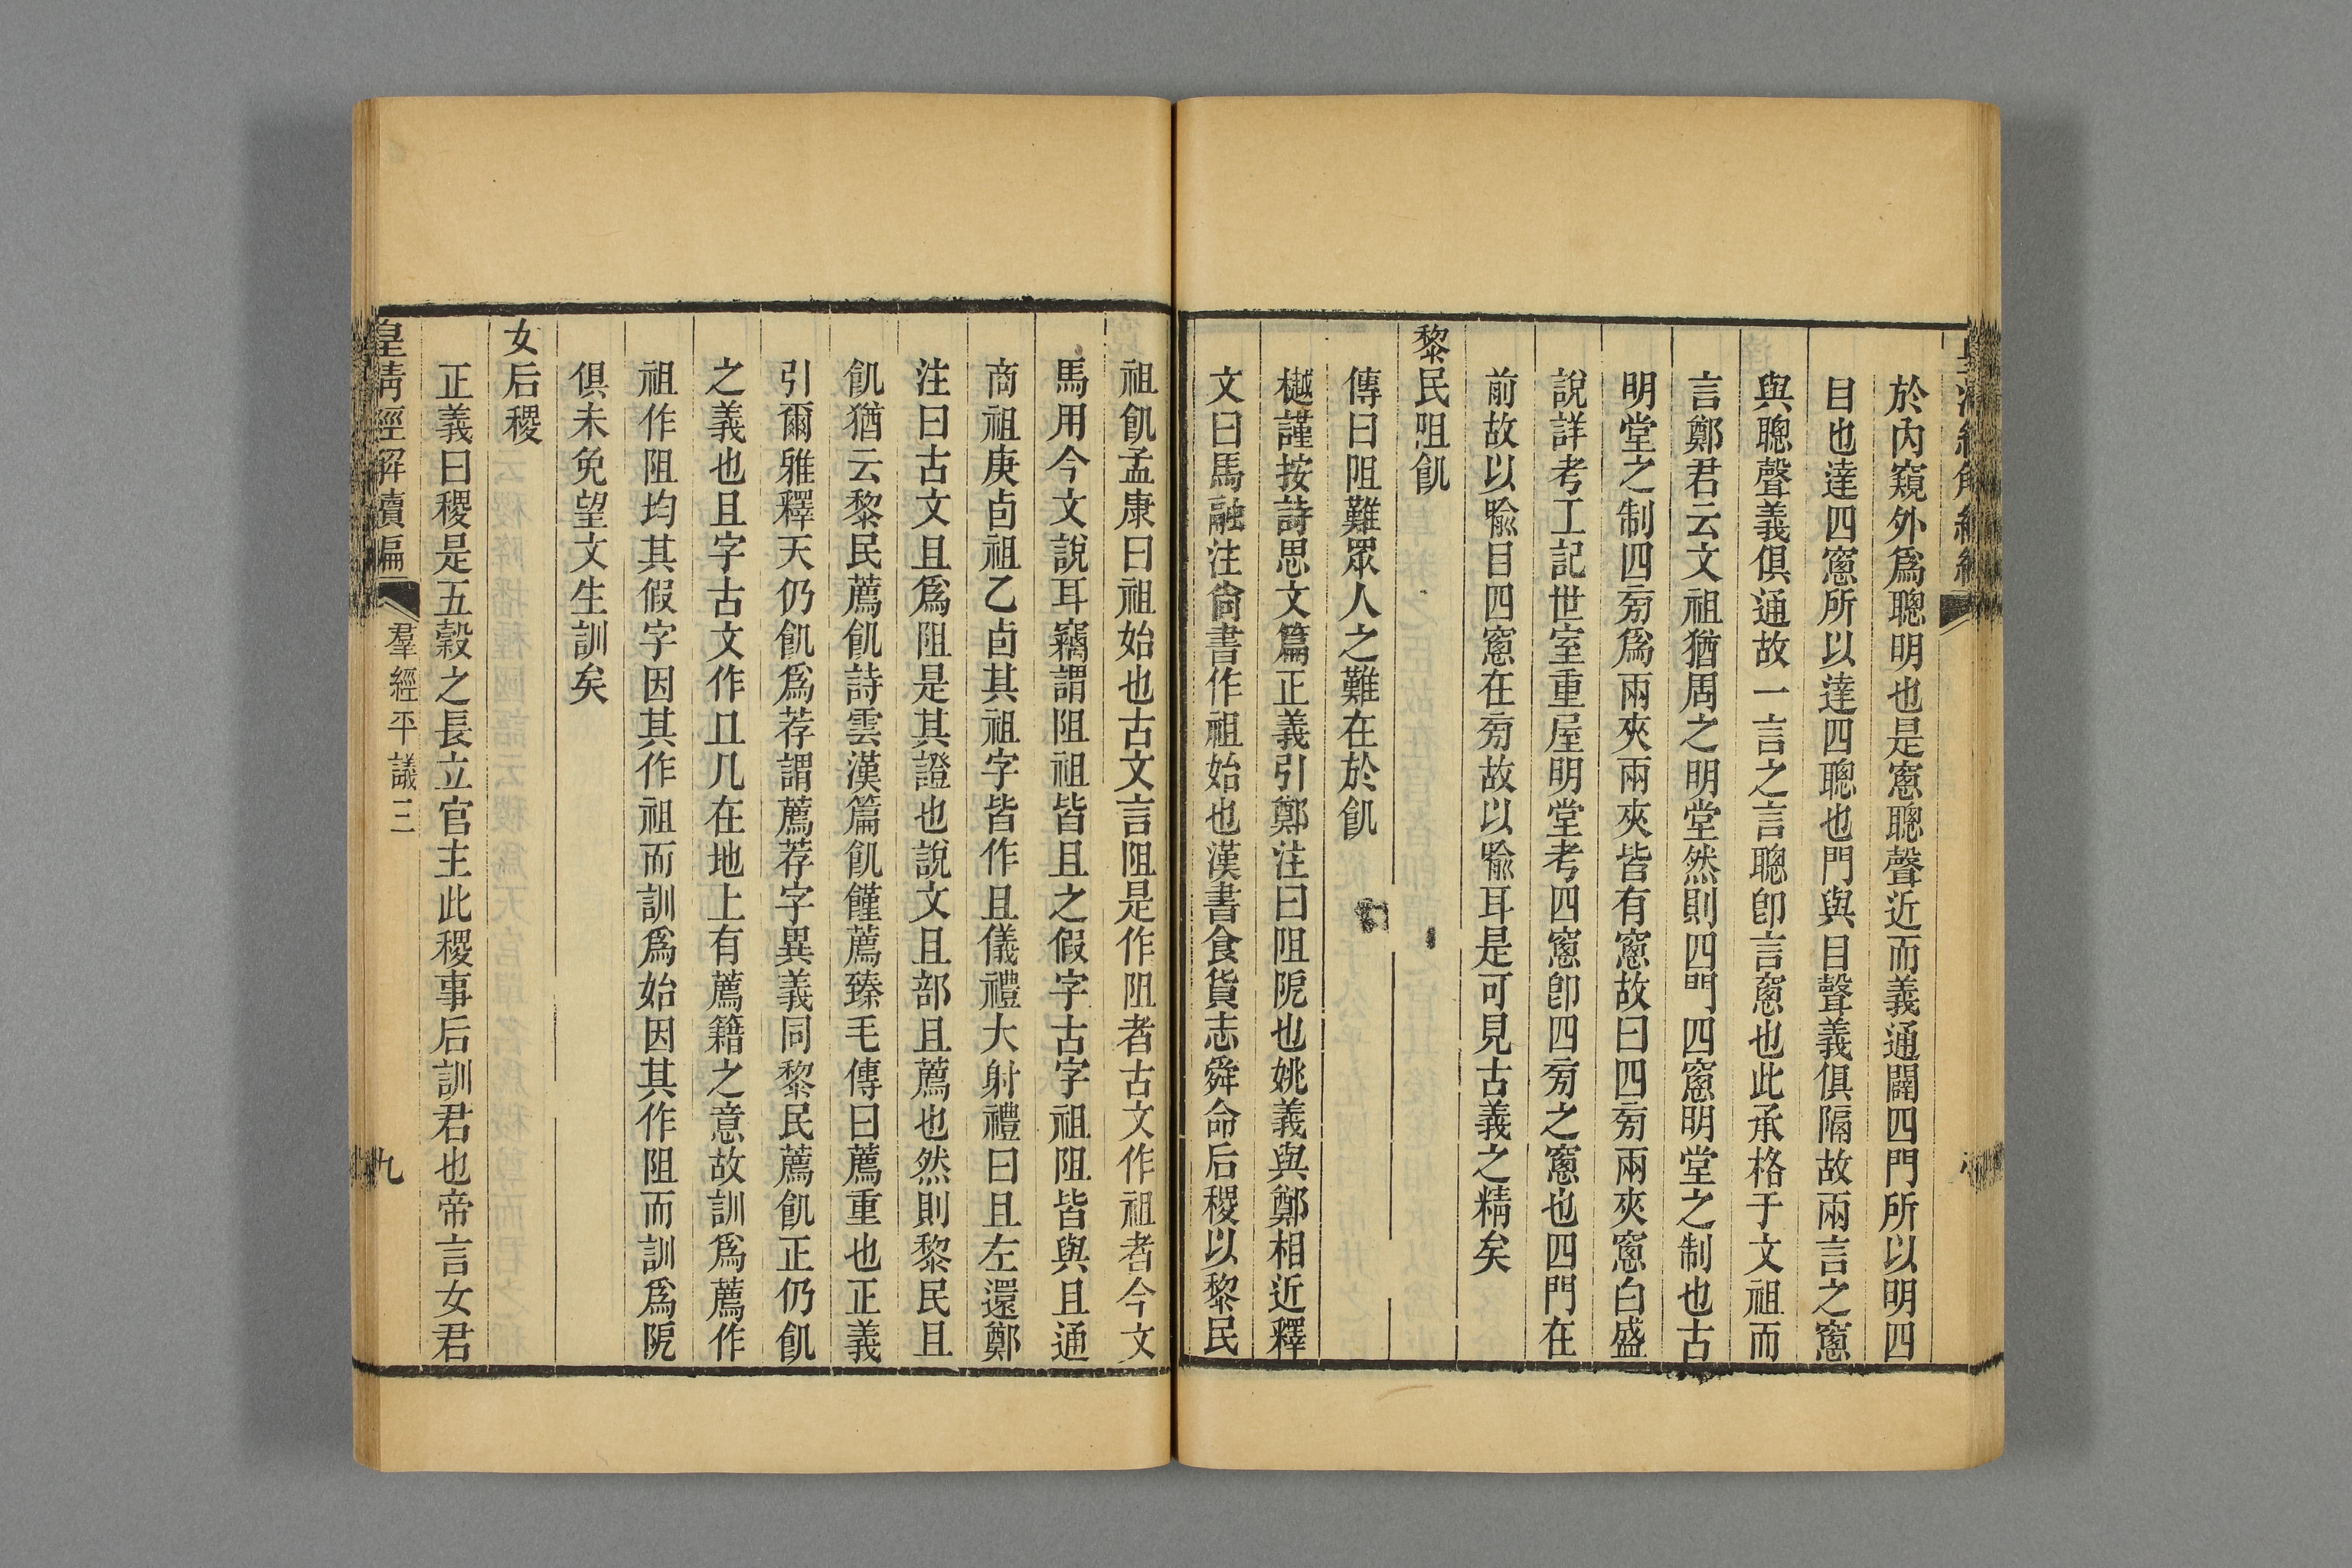 於內窺外爲聰明也是窻聰聲近而義通闢四門所以明四
目也達四窻所以達四聰也門與目聲義俱隔故兩言之窻
與聰聲義俱通故一言之言聰卽言窻也此承格于文祖而
言鄭君云文祖猶周之明堂然則四門四窻明堂之制也古
明堂之制四旁爲兩夾兩夾皆有窻故曰四旁兩夾窻白盛
說詳考工記世室重屋明堂考四窻卽四旁之窻也四門在
前故以喻目四窻在旁故以喻耳是可見古義之精矣
黎民阻飢
傳曰阻難眾人之難在於飢
樾謹按詩思文篇正義引鄭注曰阻阸也姚義與鄭相近釋
文曰馬融注尙書作祖始也漢書食貨志舜命后稷以黎民
祖飢孟康曰祖始也古文言阻是作阻者古文作祖者今文
馬用今文說耳竊謂阻祖皆且之假字古字祖阻皆與且通
商祖庚卣祖乙卣其祖字皆作且儀禮大射禮曰且左還鄭
注曰古文且爲阻是其證也說文且部且薦也然則黎民且
飢猶云黎民薦飢詩雲漢篇飢饉薦臻毛傳曰薦重也正義
引爾雅釋天仍飢爲荐謂薦荐字異義同黎民薦飢正仍飢
之義也且字古文作且几在地上有薦籍之意故訓爲薦作
祖作阻均其假字因其作祖而訓爲始因其作阻而訓爲阸
俱未免望文生訓矣
女后稷
正義曰稷是五穀之長立官主此稷事后訓君也帝言女君
皇淸經解續編 羣經平議三 九